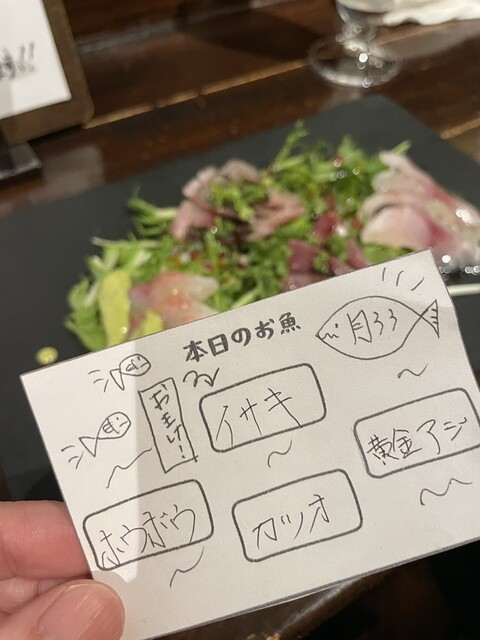 本日のお魚
おまけ!
イサキ
黄金アジ
ホウボウ
カツオ